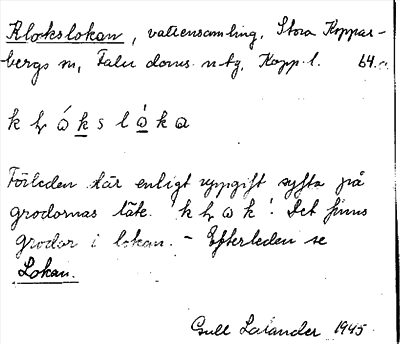 Klokslokan, vattensamling, Stora Koppar-
bergs sn, Falu doms. n tg, Kopp. l. 64.
k s l k a
Förleden lär enligt uppgift syfta på
grodornas läte. Det finns
grodor i lokan. - Efterleden se
Lokan.
Gull 1945